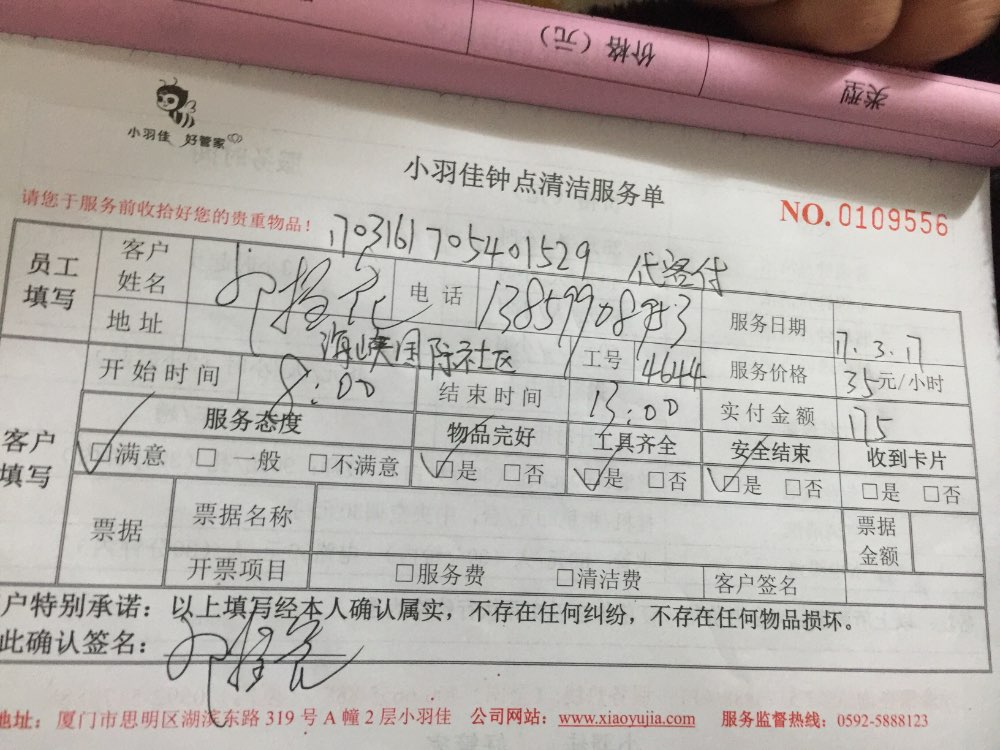 价格（元）
类型
小羽佳 好管家
小羽佳钟点清洁服务单
NO. 0109556
请您于服务前收拾好您的贵重物品！
170316170540 1529 代客付
员工填写
客户姓名
电话
服务日期 17.3.17
地址 海峡国际社区
工号 4644
服务价格 35元/小时
开始时间 8:00
结束时间 13:00
实付金额 175
客户填写
服务态度 物品完好 工具齐全 安全结束 收到卡片
□满意 □一般 □不满意 □是 □否 □是 □否 □是 □否 □是 □否
票据
票据名称
票据金额
开票项目 □服务费 □清洁费 客户签名
户特别承诺：以上填写经本人确认属实，不存在任何纠纷，不存在任何物品损坏。
此确认签名：
地址：厦门市思明区湖滨东路319号A幢2层小羽佳 公司网站：www.xiaoyujia.com 服务监督热线：0592-5888123